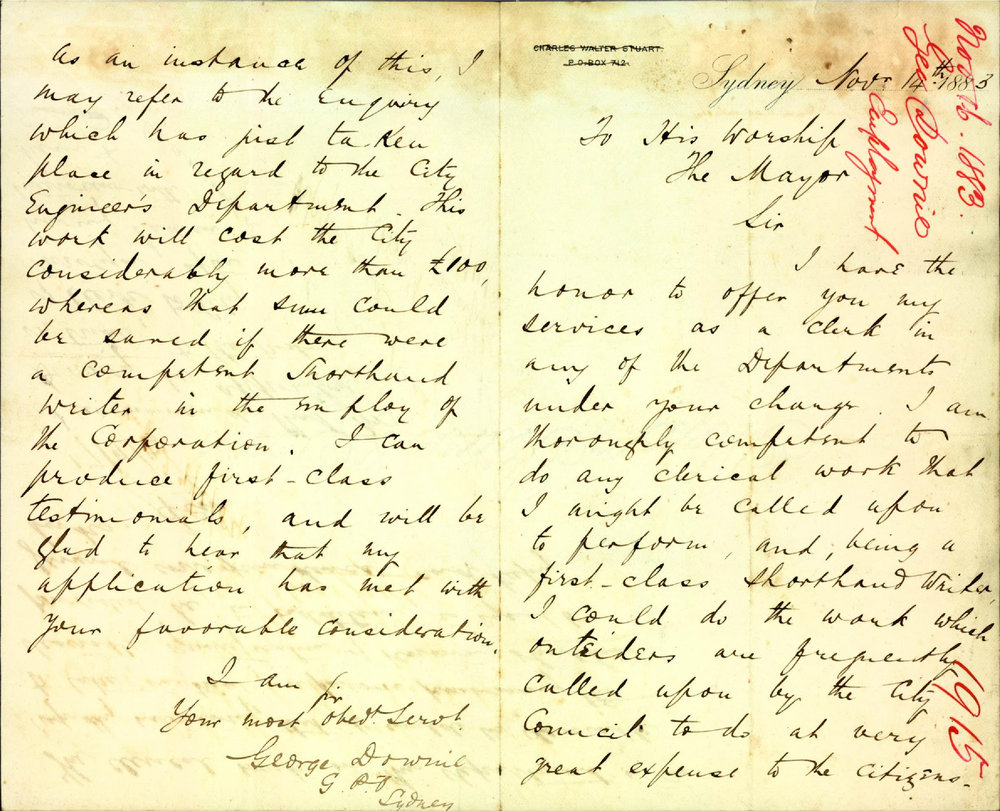 CHARLES WALTER STUART.
P.O. BOX 712.
Sydney Novr 14th 1883
To His Worship
The Mayor
Sir
I have the
honor to offer you my
services as a clerk in
any of the Departments
under your charge. I am
thoroughly competent to
do any clerical work that
I might be called upon
to perform, and, being a
first-class Shorthand Writer,
I could do the work which
outsiders are frequently
called upon by the City
Council to do at very
great expense to the citizens.
As an instance of this, I
may refer to the Enquiry
which has just taken
place in regard to the City
Engineer's Department. This
work will cost the City
considerably more than £100,
whereas that sum could
be saved if there were
a competent Shorthand
writer in the employ of
the Corporation. I can
produce first-class
testimonials, and will be
glad to hear that my
application has met with
your favorable consideration.
I am Sir
Your most Obedt. Servt.
George Downie
G.P.O
Sydney
Nov 16. 1883.
Geo Downie
Employment
1915